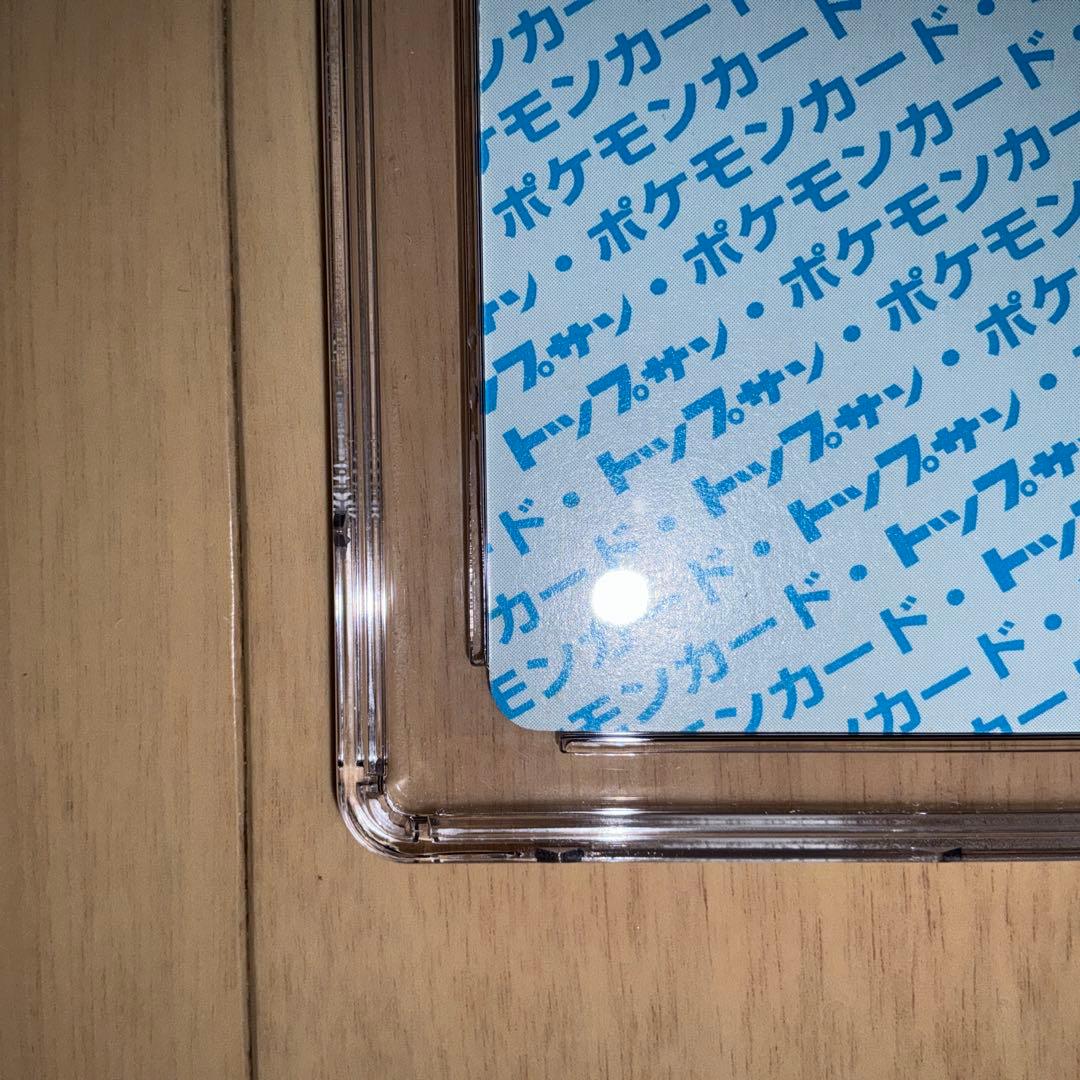 ンカー
ケモンカー
ポケモンカード
ン・ポケモンカード・
ップサン・ポケモンカード・
トップサン・ポケモンカー
ド・トップサン・ポケモン
カード・トップサン・ポケ
モンカード・トップサン・
モンカード・トップサ
ンカード・トッ
カード・
カー